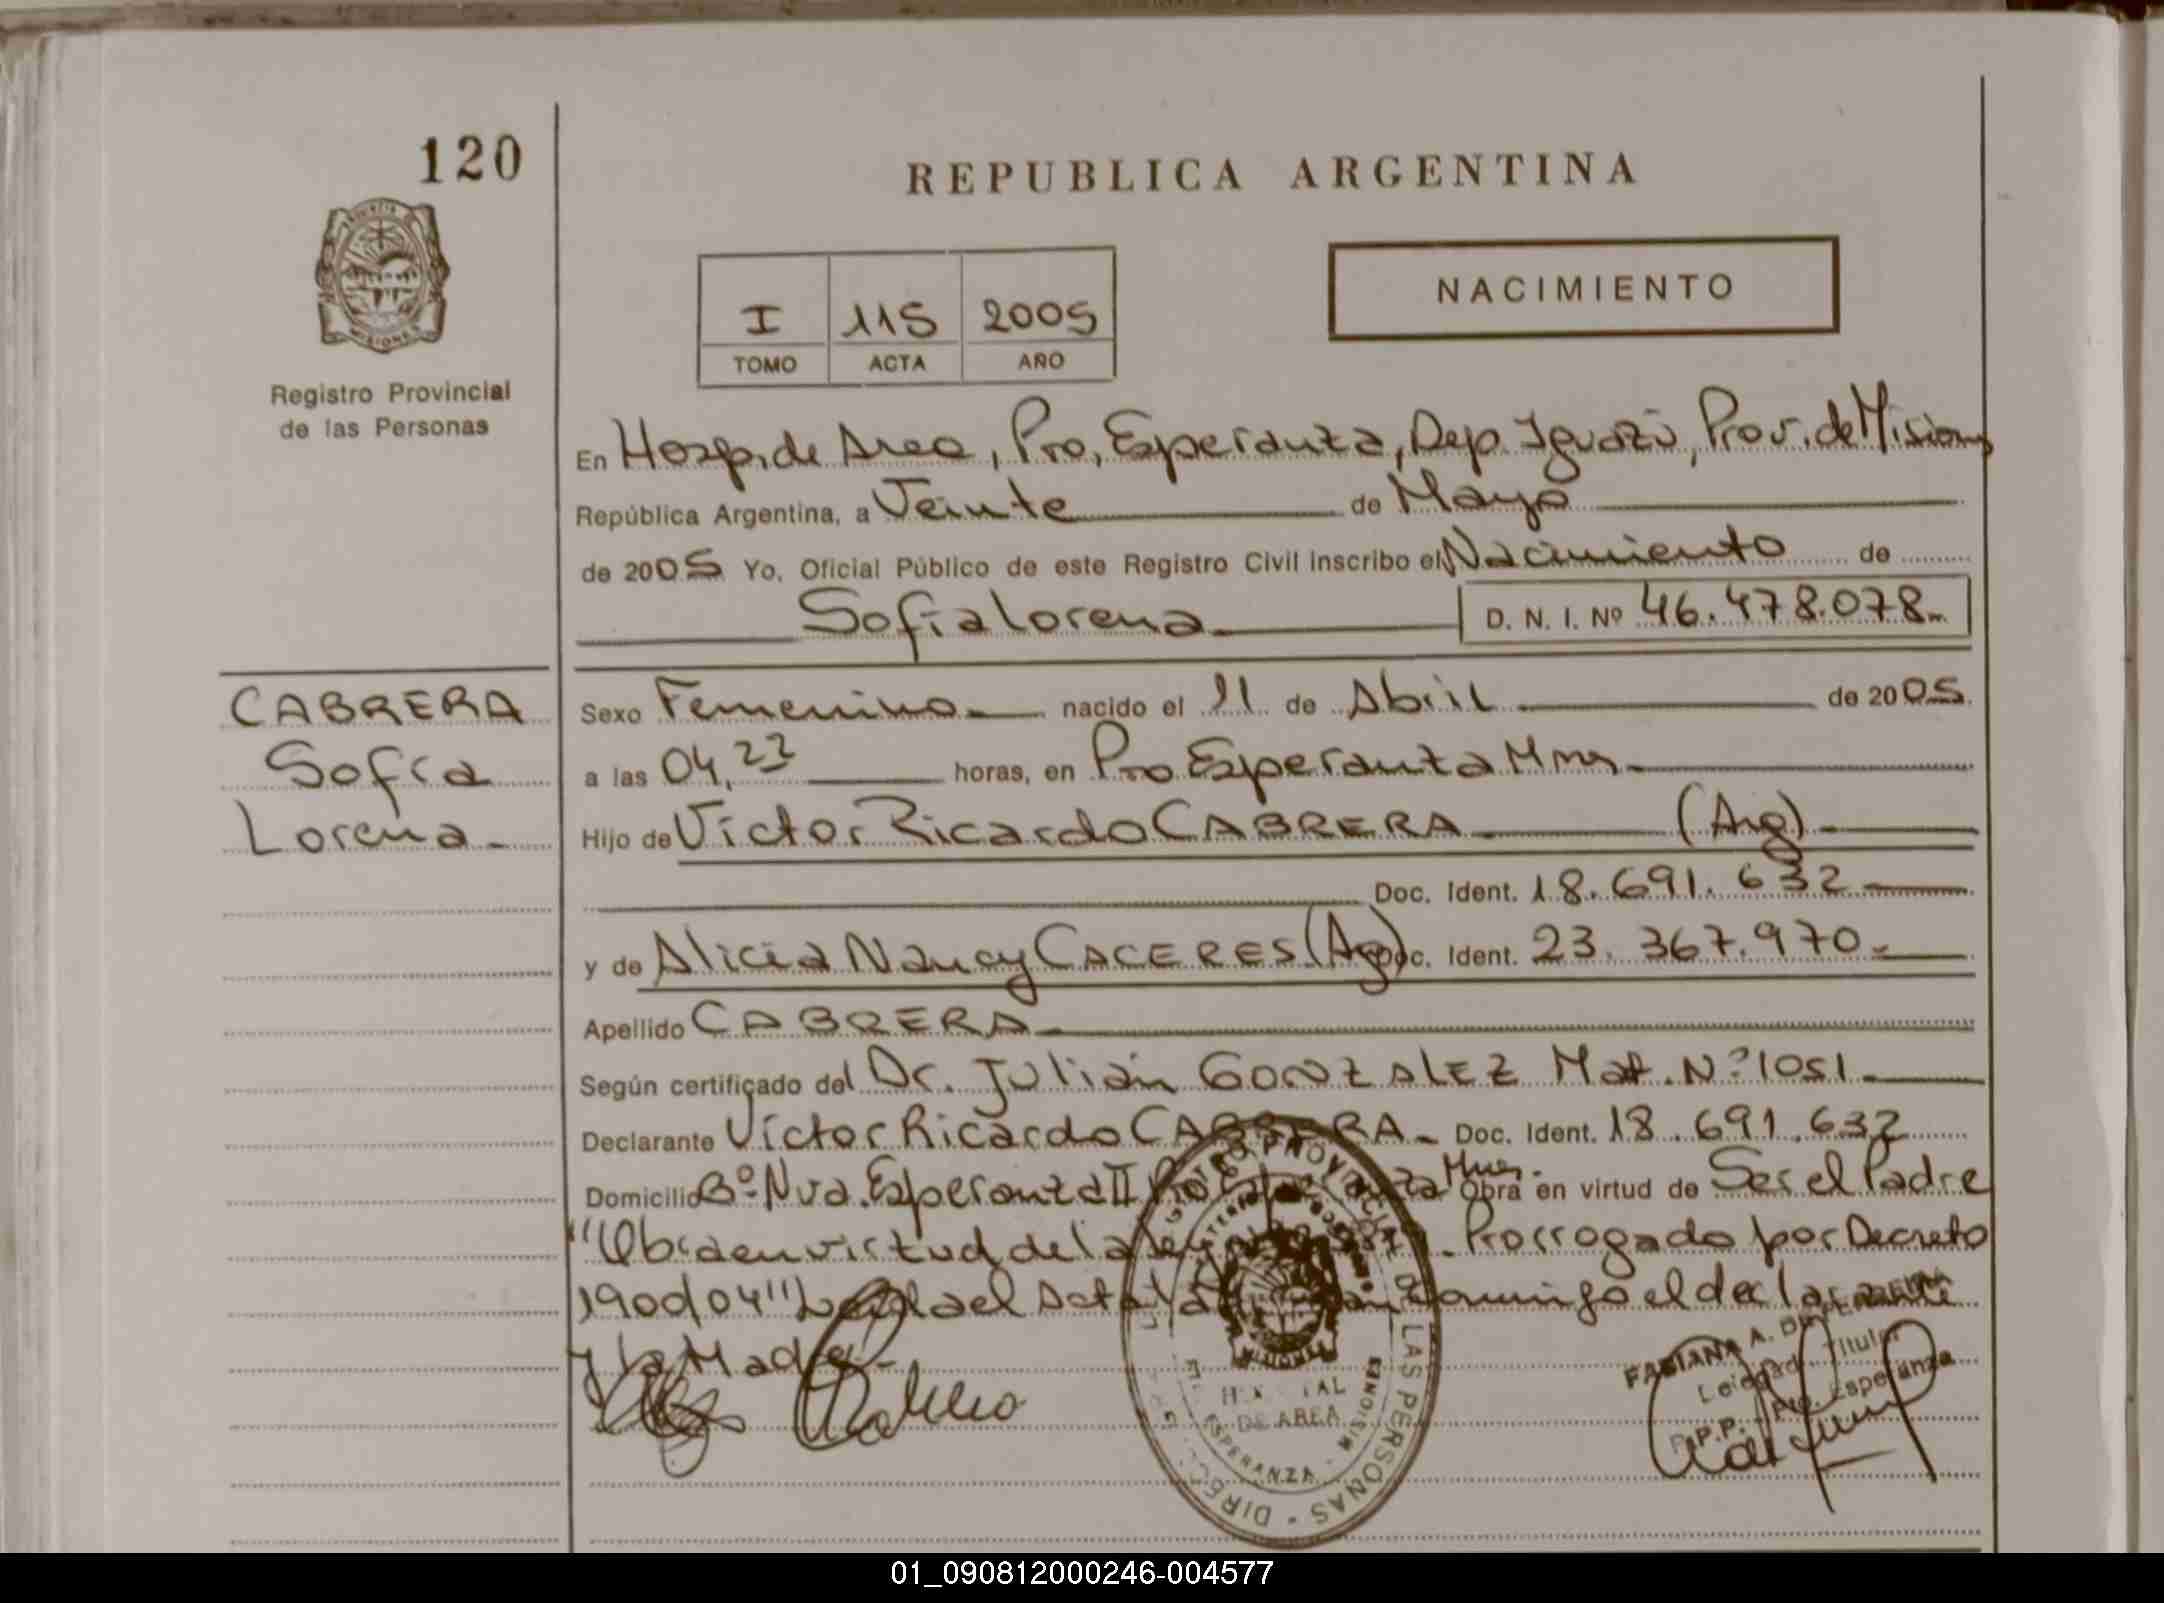 120
REPUBLICA ARGENTINA
NACIMIENTO
I 115 2005
TOMO ACTA AÑO
Registro Provincial
de las Personas
En Hosp. de Area, Pto, Esperanza, Dep. Iguazú, Prov. de Misiones
República Argentina, a Veinte de Mayo
de 2005 Yo, Oficial Público de este Registro Civil inscribo el Nacimiento de
Sofía Lorena D. N. I. Nº 46.478.078
CABRERA
Sofía
Lorena
Sexo Femenino nacido el 11 de Abril de 2005
a las 04,22 horas, en Pto Esperanza Mnes
Hijo de Víctor Ricardo CABRERA (Arg)
Doc. Ident. 18.691.632
y de Alicia Nancy CACERES (Arg) Doc. Ident. 23.367.970
Apellido CABRERA
Según certificado del Dr. Julián GONZALEZ Mat. Nº 1051
Declarante Víctor Ricardo CABRERA Doc. Ident. 18.691.632
Domicilio Bº Nva. Esperanza II Pto Esperanza Mnes. Obra en virtud de Ser el Padre
"Obra en virtud de la Ley Prorrogado por Decreto
1900/04" Leída el Acta el declarante
y la Madre
REGISTRO PROVINCIAL DE LAS PERSONAS
HOSPITAL
DE AREA
ESPERANZA - MISIONES
FABIANA A.
Titular
Pto. Esperanza
01_090812000246-004577